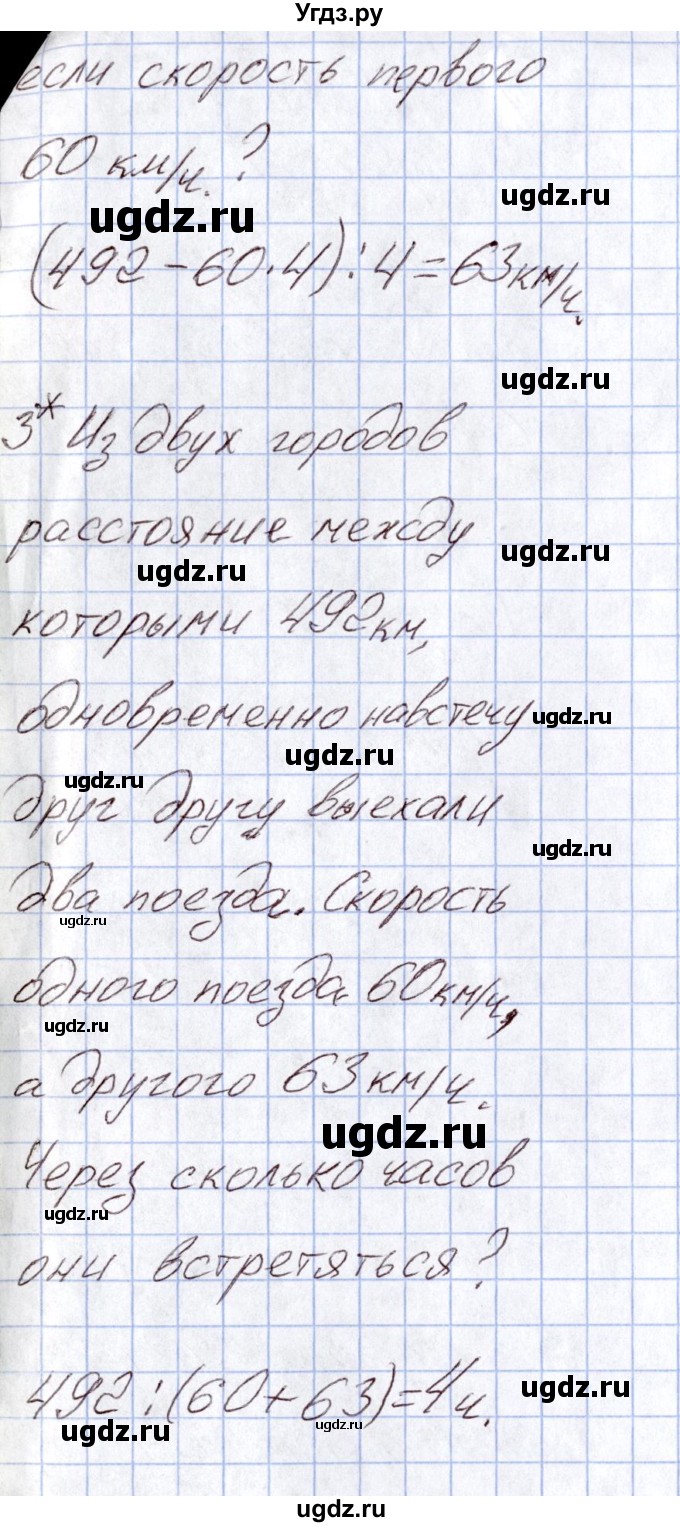 Угдз.ру
если скорость первого
60 км/ч.?
ugdz.ru
ugdz.ru
(492-60·4):4=63км/ч.
ugdz.ru
3* Из двух городов
расстояние между
ugdz.ru
ugdz.ru
которыми 492км,
одновременно навстечу
ugdz.ru
ugdz.ru
ugdz.ru
друг другу выехали
ugdz.ru
два поезда. Скорость
ugdz.ru
одного поезда 60км/ч,
ugdz.ru
а другого 63км/ч.
ugdz.ru
Через сколько часов
ugdz.ru
они встретяться?
492:(60+63)=4ч.
ugdz.ru
ugdz.ru
ugdz.ru
ugdz.ru